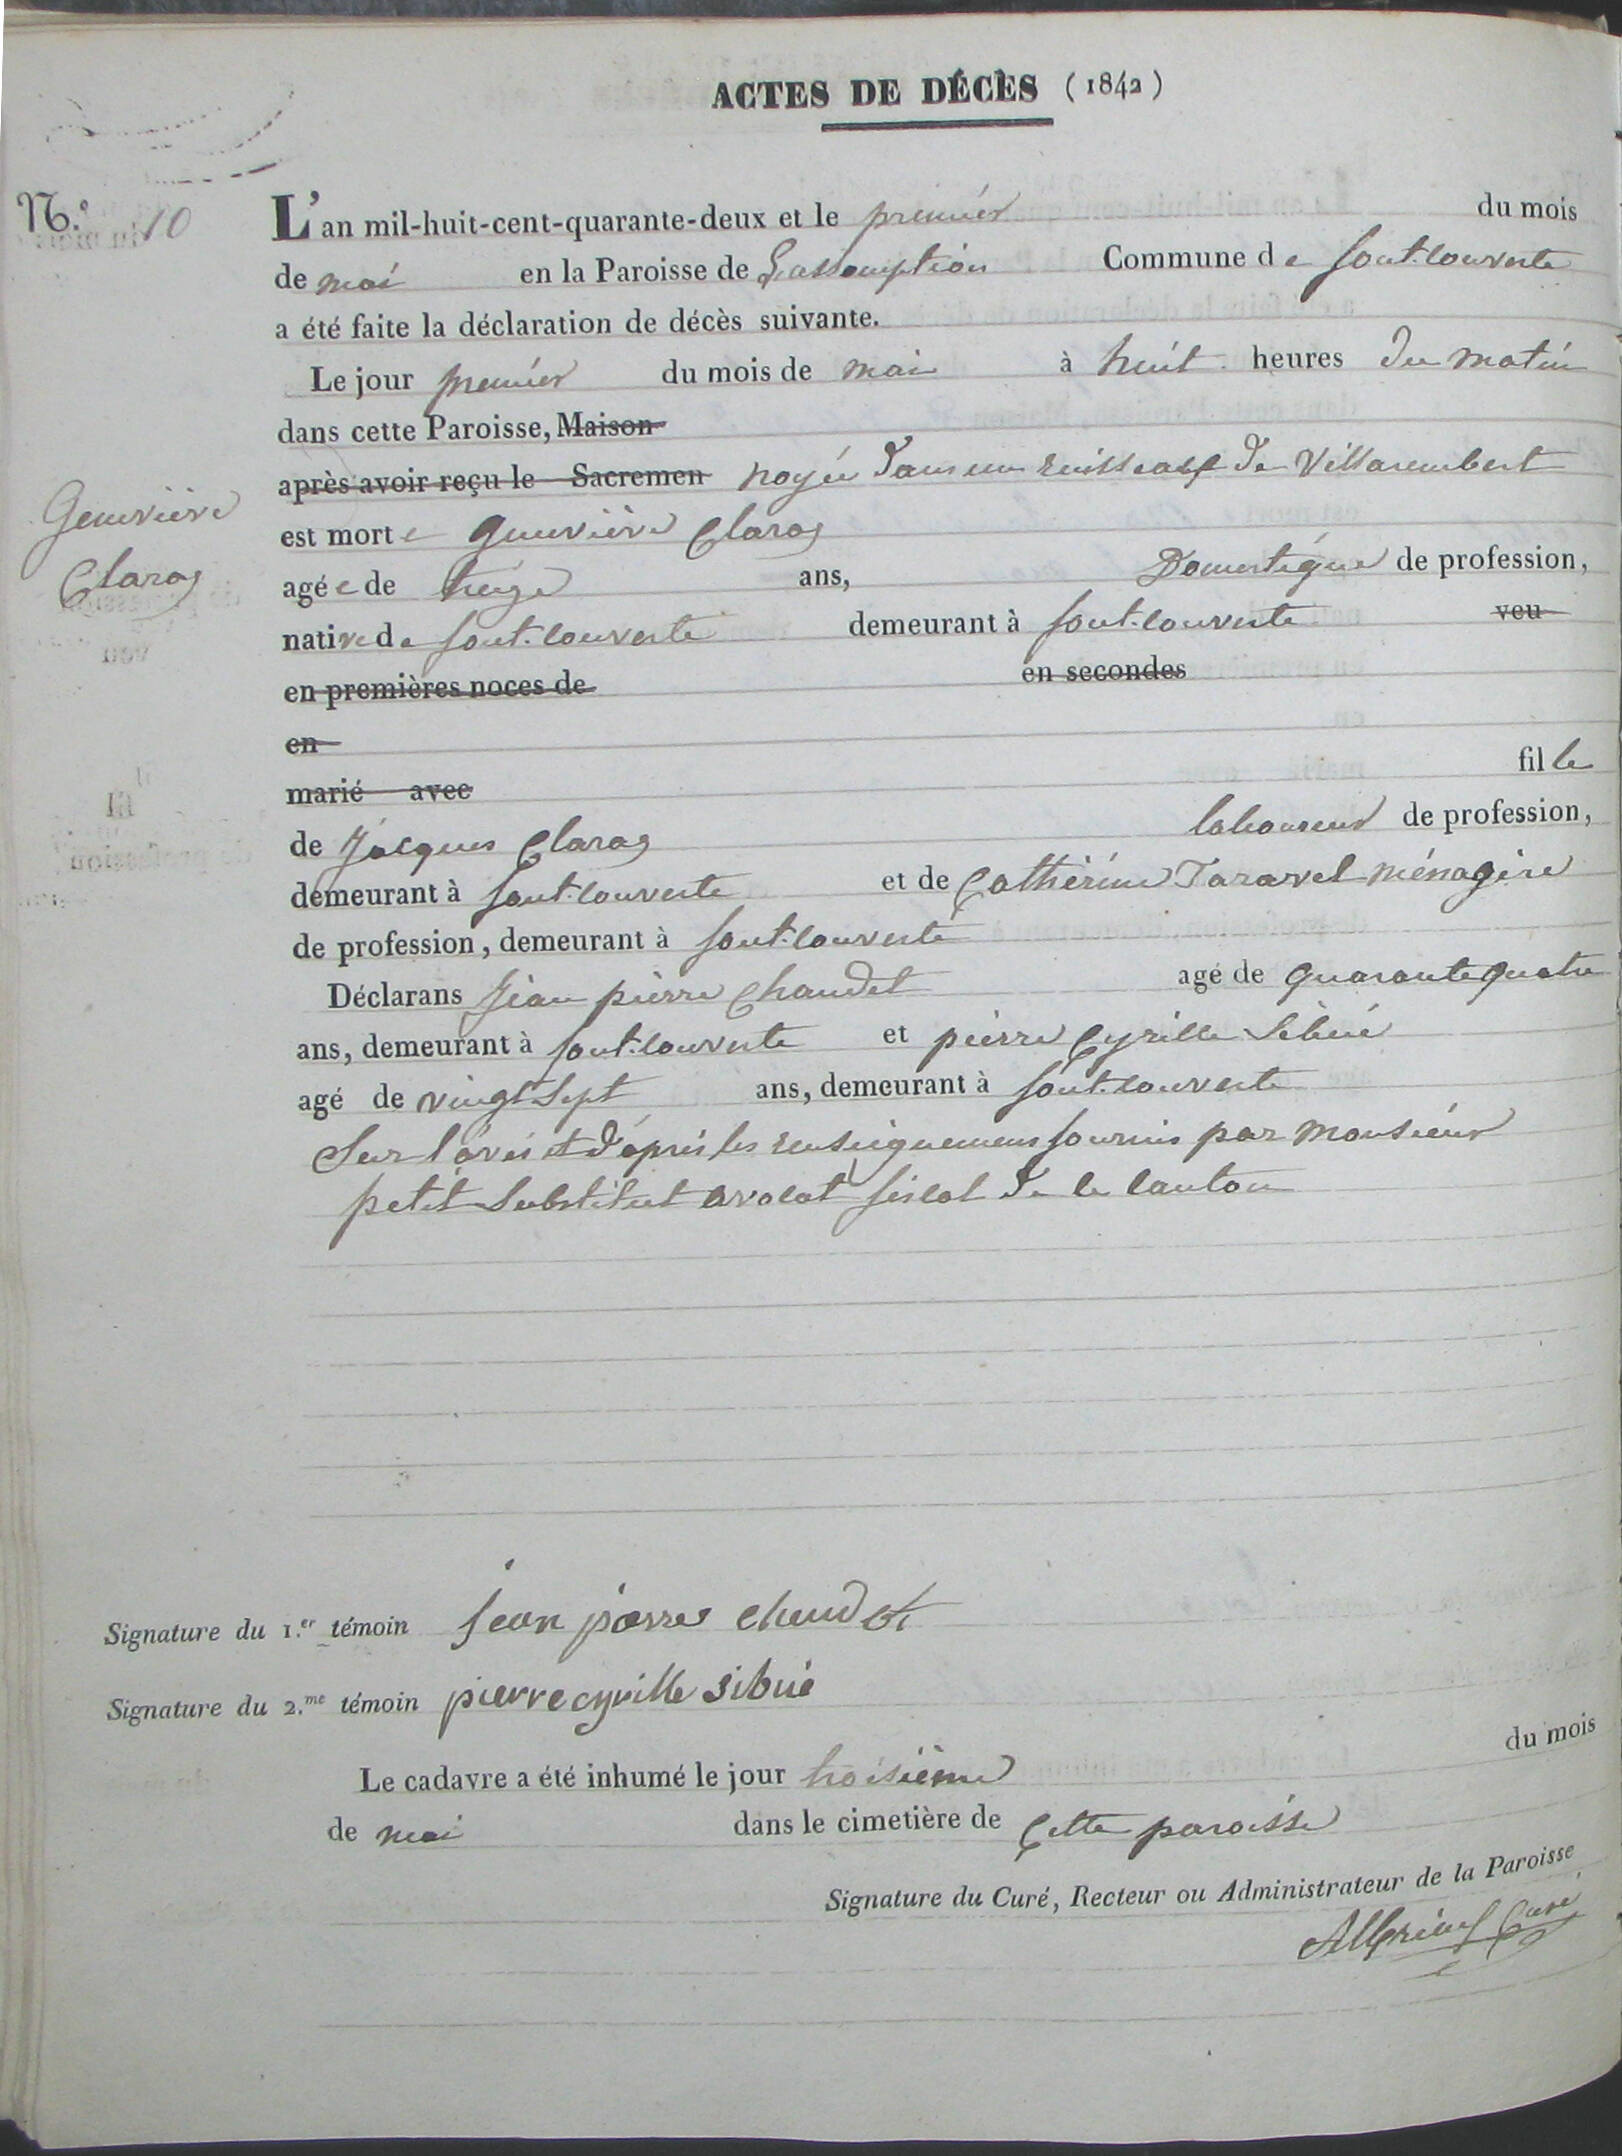 ACTES DE DÉCÈS (1842)
N.º 10
L'an mil-huit-cent-quarante-deux et le premier du mois
de mai en la Paroisse de L'assomption Commune de font-couverte
a été faite la déclaration de décès suivante.
Le jour premier du mois de mai à huit heures du matin
dans cette Paroisse, Maison
après avoir reçu le Sacremen noyée dans un ruisseau de Villarembert
Geneviève
Claraz
est morte geneviève Claraz
agée de treize ans, Domestique de profession,
native de font-couverte demeurant à font-couverte veu
en premières noces de en secondes
en
marié avec fille
de Jacques Claraz laboureur de profession,
demeurant à font-couverte et de Catherine Taravel ménagère
de profession, demeurant à font-couverte
Déclarans Jean pierre Chaudet agé de quarante quatre
ans, demeurant à font-couverte et pierre Cyrille Sibué
agé de vingt sept ans, demeurant à font-couverte
Sur l'avis et d'après les renseignemens fournis par monsieur
petit Substitut avocat fiscal de le canton
Signature du 1.er témoin jean pierre chaudet
Signature du 2.me témoin pierre cyrille sibué
Le cadavre a été inhumé le jour troisième du mois
de mai dans le cimetière de Cette paroisse
Signature du Curé, Recteur ou Administrateur de la Paroisse
Curé